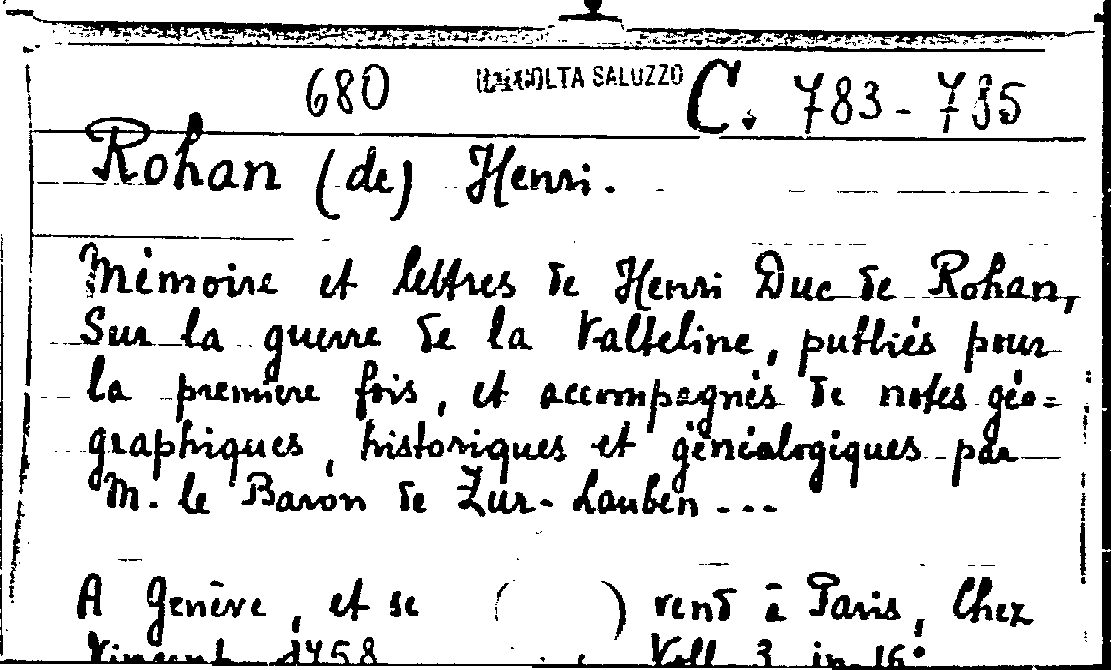 680 RACCOLTA SALUZZO C. 783-785
Rohan (de) Henri.
Mémoire et lettres de Henri Duc de Rohan,
Sur la guerre de la Valteline, publiés pour
la première fois, et accompagnés de notes géo=
graphiques, historiques et généalogiques par
M. le Baron de Zur-Lauben ---
A Genève, et se ( ) vend à Paris, Chez
Vincent 1758 Voll. 3 in-16°